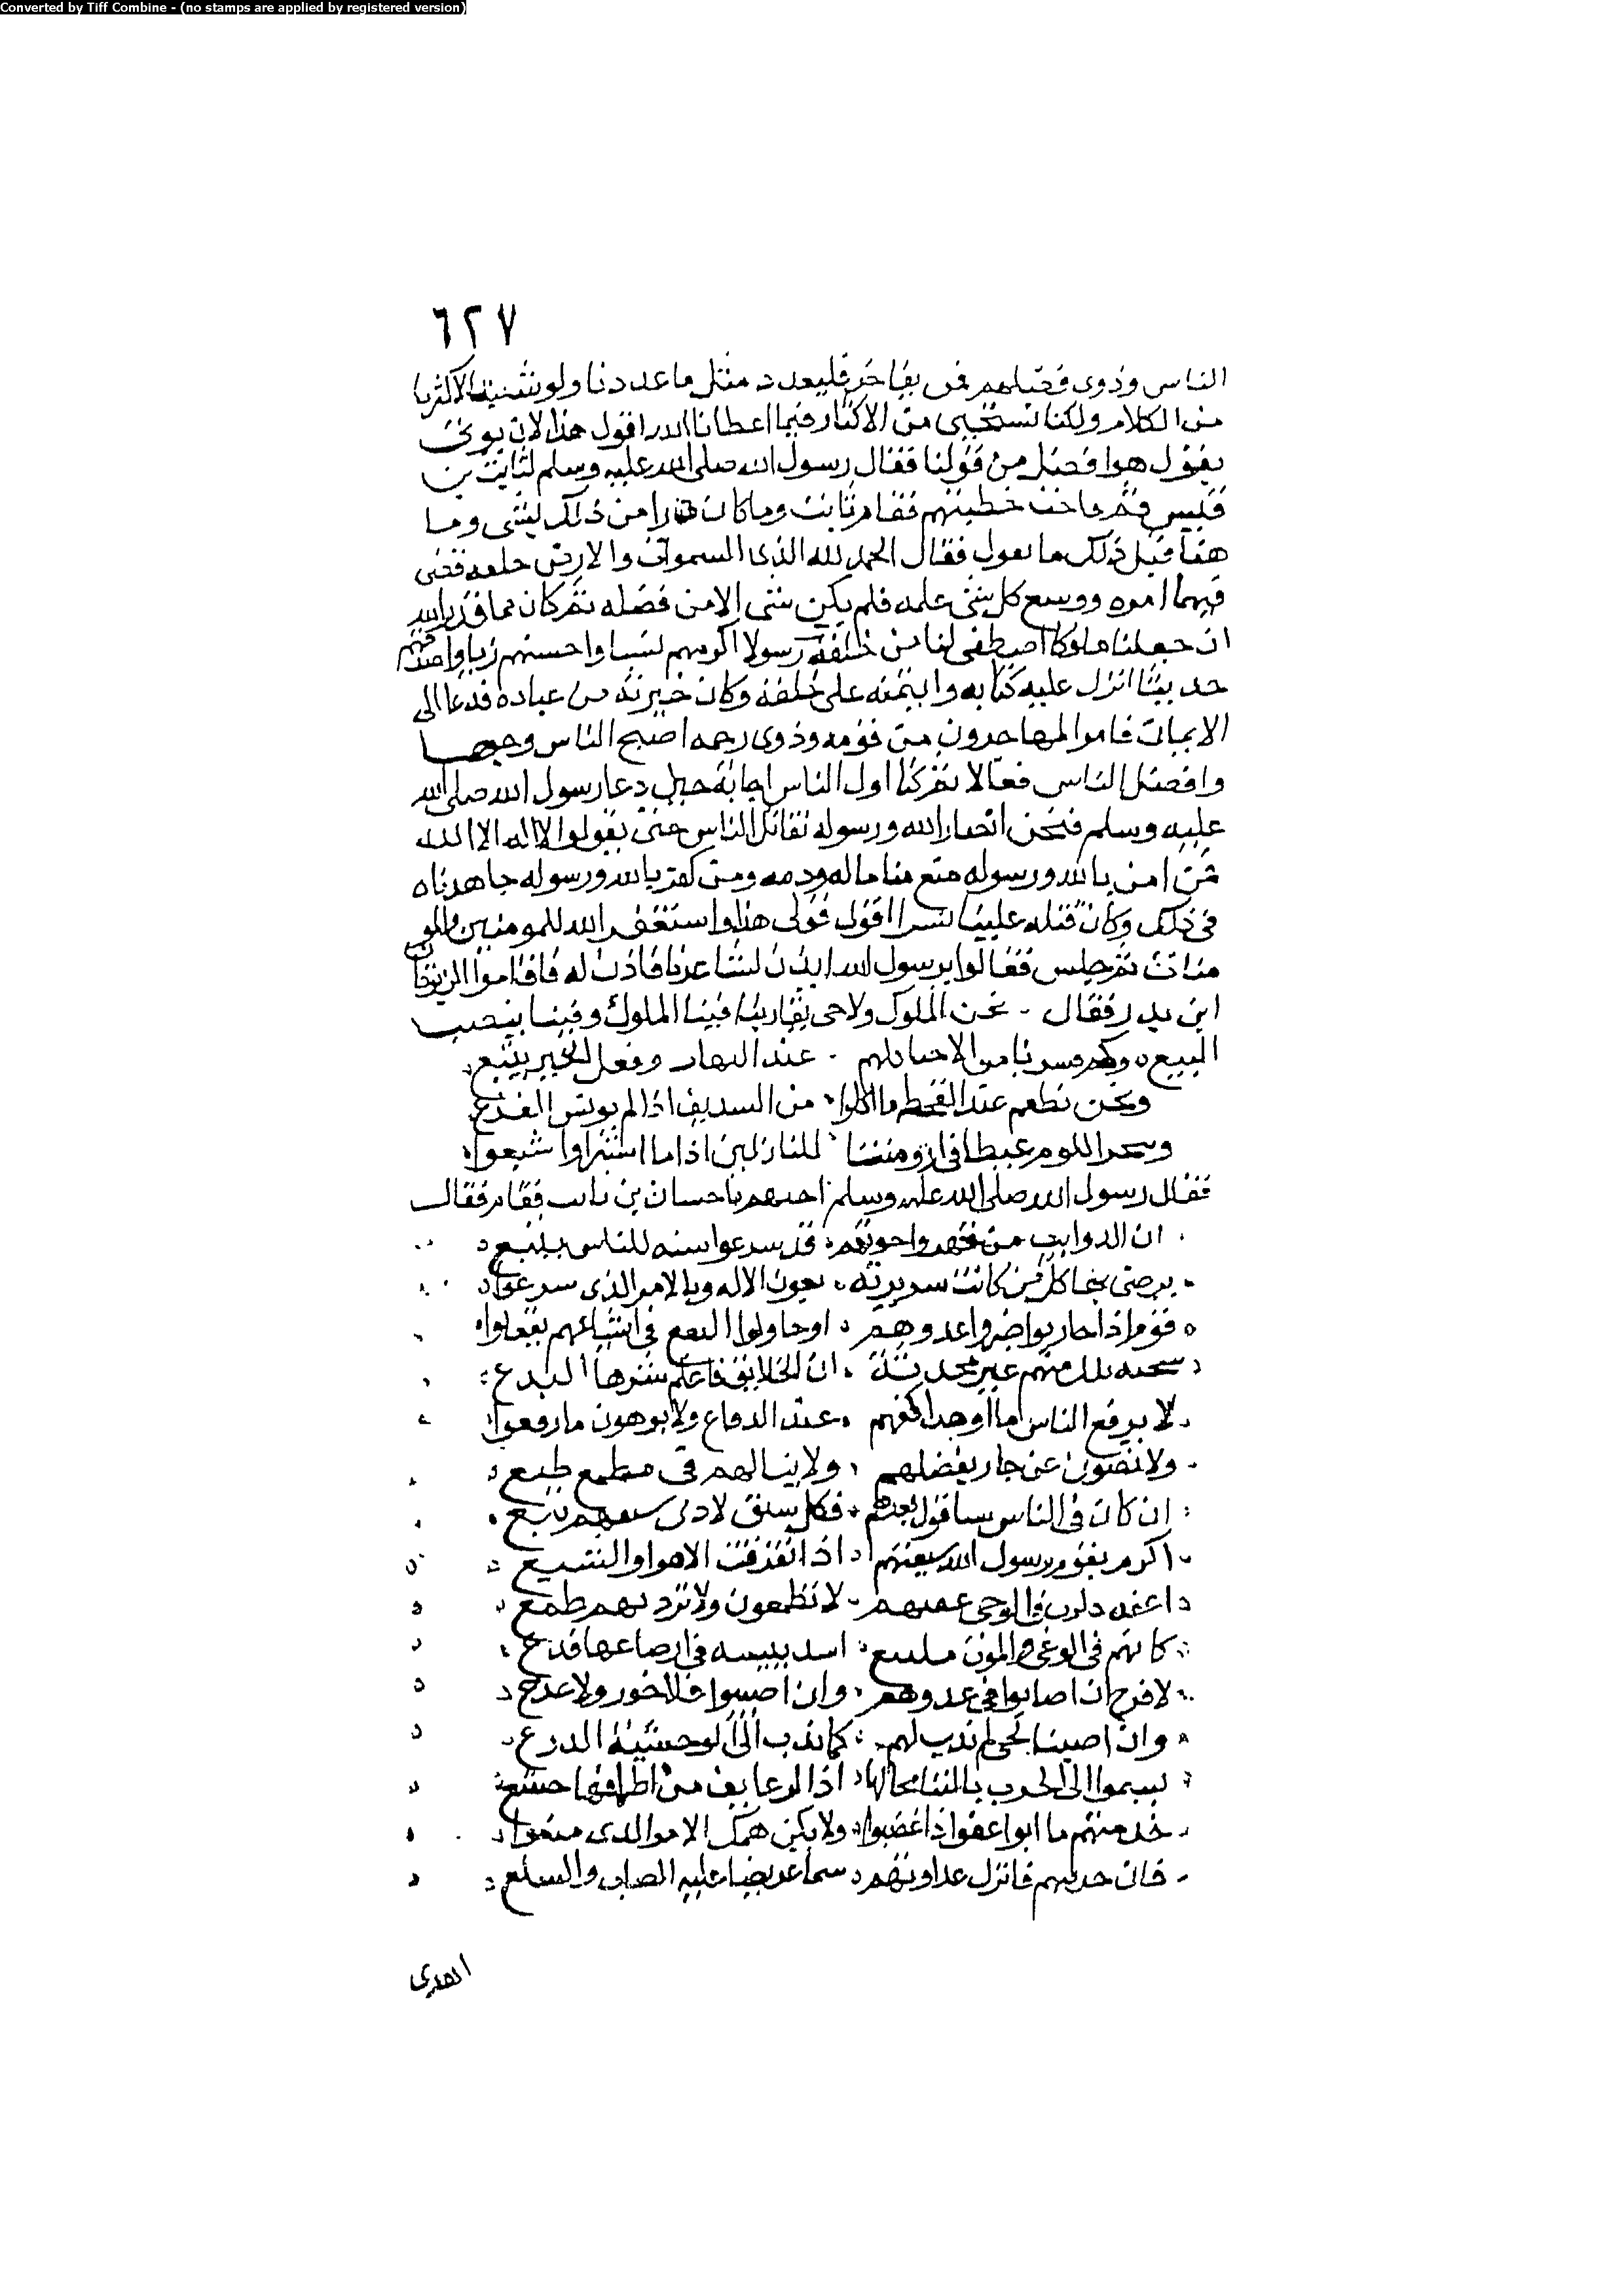 Converted by Tiff Combine - (no stamps are applied by registered version)
٦٢٧
الناس وذوى فضلهم فمن يفاخر فليعدد مثل ما عددنا ولو شئنا لاكثرنا
من الكلام ولكنا نستحيى من الاكثار فيما اعطانا الله اقول هذا لان يوتى
بقول هو افضل من قولنا فقال رسول الله صلى الله عليه وسلم لثابت بن
قيس قم فاجب خطيبهم فقام ثابت وما كان من ذلك بشى وما
هيا قبل ذلك ما يقول فقال الحمد لله الذى السموات والارض خلقه قضى
فيهما امره ووسع كل شى علمه فلم يكن شى الا من فضله ثم كان مما قدر الله
ان جعلنا ملوكا اصطفى لنا من خلقه رسولا اكرمهم نسبا واحسنهم زيا واصدقهم
حديثا انزل عليه كتابه وايتمنه على خلقه وكان خيرته من عباده فدعا الى
الايمان فامن المهاجرون من قومه وذوى رحمه اصبح الناس وجها
وافضل الناس فعالا ثم كنا اول الناس اجابة حين دعا رسول الله صلى الله
عليه وسلم فنحن انصار الله ورسوله نقاتل الناس حتى يقولوا لا اله الا الله
فمن امن بالله ورسوله منع منا ماله ودمه ومن كفر بالله ورسوله جاهدناه
فى ذلك وكان قتله علينا يسرا اقول قولى هذا واستغفر الله للمومنين والمو
منات ثم جلس فقالوا يرسول الله ايذن لشاعرنا فاذن له فاقاموا الزبرقان
ابن بدر فقال نحن الملوك ولا حى يقاربنا فينا الملوك وفينا ينصب
البيع وكم قسرنا من الاحيا كلهم عند النهاب وفعل الخير يتبع
ونحن نطعم عند القحط ما اكلوا من السديف اذا لم يونس القزع
وننحر الكوم عبطا فى ارومتنا للنازلين اذا ما استنزلوا شبعوا
فقال رسول الله صلى الله عليه وسلم اجبهم يا حسان بن ثابت فقام فقال
ان الذوايب من فهر واخوتهم قد شرعوا سنه للناس تتبع
يرضى بها كل من كانت سريرته تقوى الاله وبالامر الذى شرعوا
قوم اذا حاربوا ضروا عدوهم او حاولوا النفع فى اشياعهم نفعوا
سجيه تلك منهم غير محدثة ان الخلايق فاعلم شرها البدع
لا يرقع الناس ما اوهت اكفهم عند الدفاع ولا يوهون ما رقعوا
ولا يضنون عن جار بفضلهم ولا ينالهم فى مطمع طبع
ان كان فى الناس سباقون بعدهم فكل سبق لادنى سبقهم تبع
اكرم بقوم رسول الله شيعتهم اذا تفرقت الاهوا والشيع
اعفه ذكرت فى الوحى عفتهم لا يطمعون ولا يزرى بهم طمع
كانهم فى الوغى والموت مكتنع اسد ببيشه فى ارصاعها فدع
لا فرح ان اصابوا فى عدوهم وان اصيبوا فلا خور ولا جزع
وان اصبنا لحى لم ندب لهم كما يدب الى الوحشية الذرع
نسموا الى الحرب نالتنا مخالبها اذا الزعانف من اظفارها خشع
خذ منهم ما اتوا عفوا اذا غضبوا ولا يكن همك الامر الذى منعوا
فان حربهم فاترك عداوتهم سما عريضا عليه الصاب والسلع
اهدى